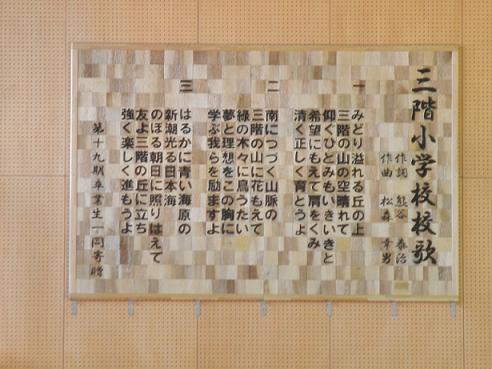 三階小学校校歌
作詞 熊谷 泰治
作曲 松森 幸男
一
みどり溢れる丘の上
三階の山の空晴れて
仰ぐひとみもいきいきと
希望にもえて肩をくみ
清く正しく育とうよ
二
南につづく山脈の
三階の山に花もえて
緑の木々に鳥うたい
夢と理想をこの胸に
学ぶ我らを励ますよ
三
はるかに青い海原の
新潮光る日本海
のぼる朝日に照りはえて
友よ三階の丘に立ち
強く楽しく進もうよ
第十九期卒業生一同寄贈